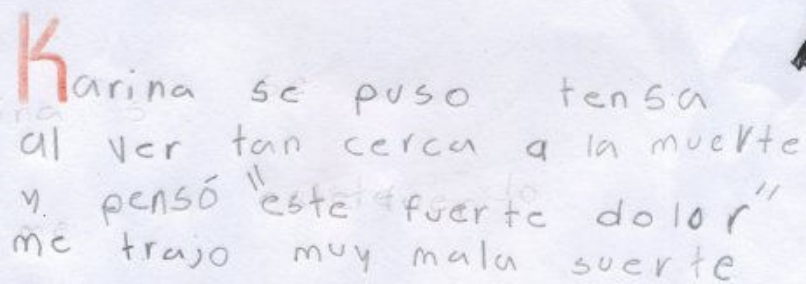 Karina se puso tensa
al ver tan cerca a la muerte
y pensó "este fuerte dolor"
me trajo muy mala suerte